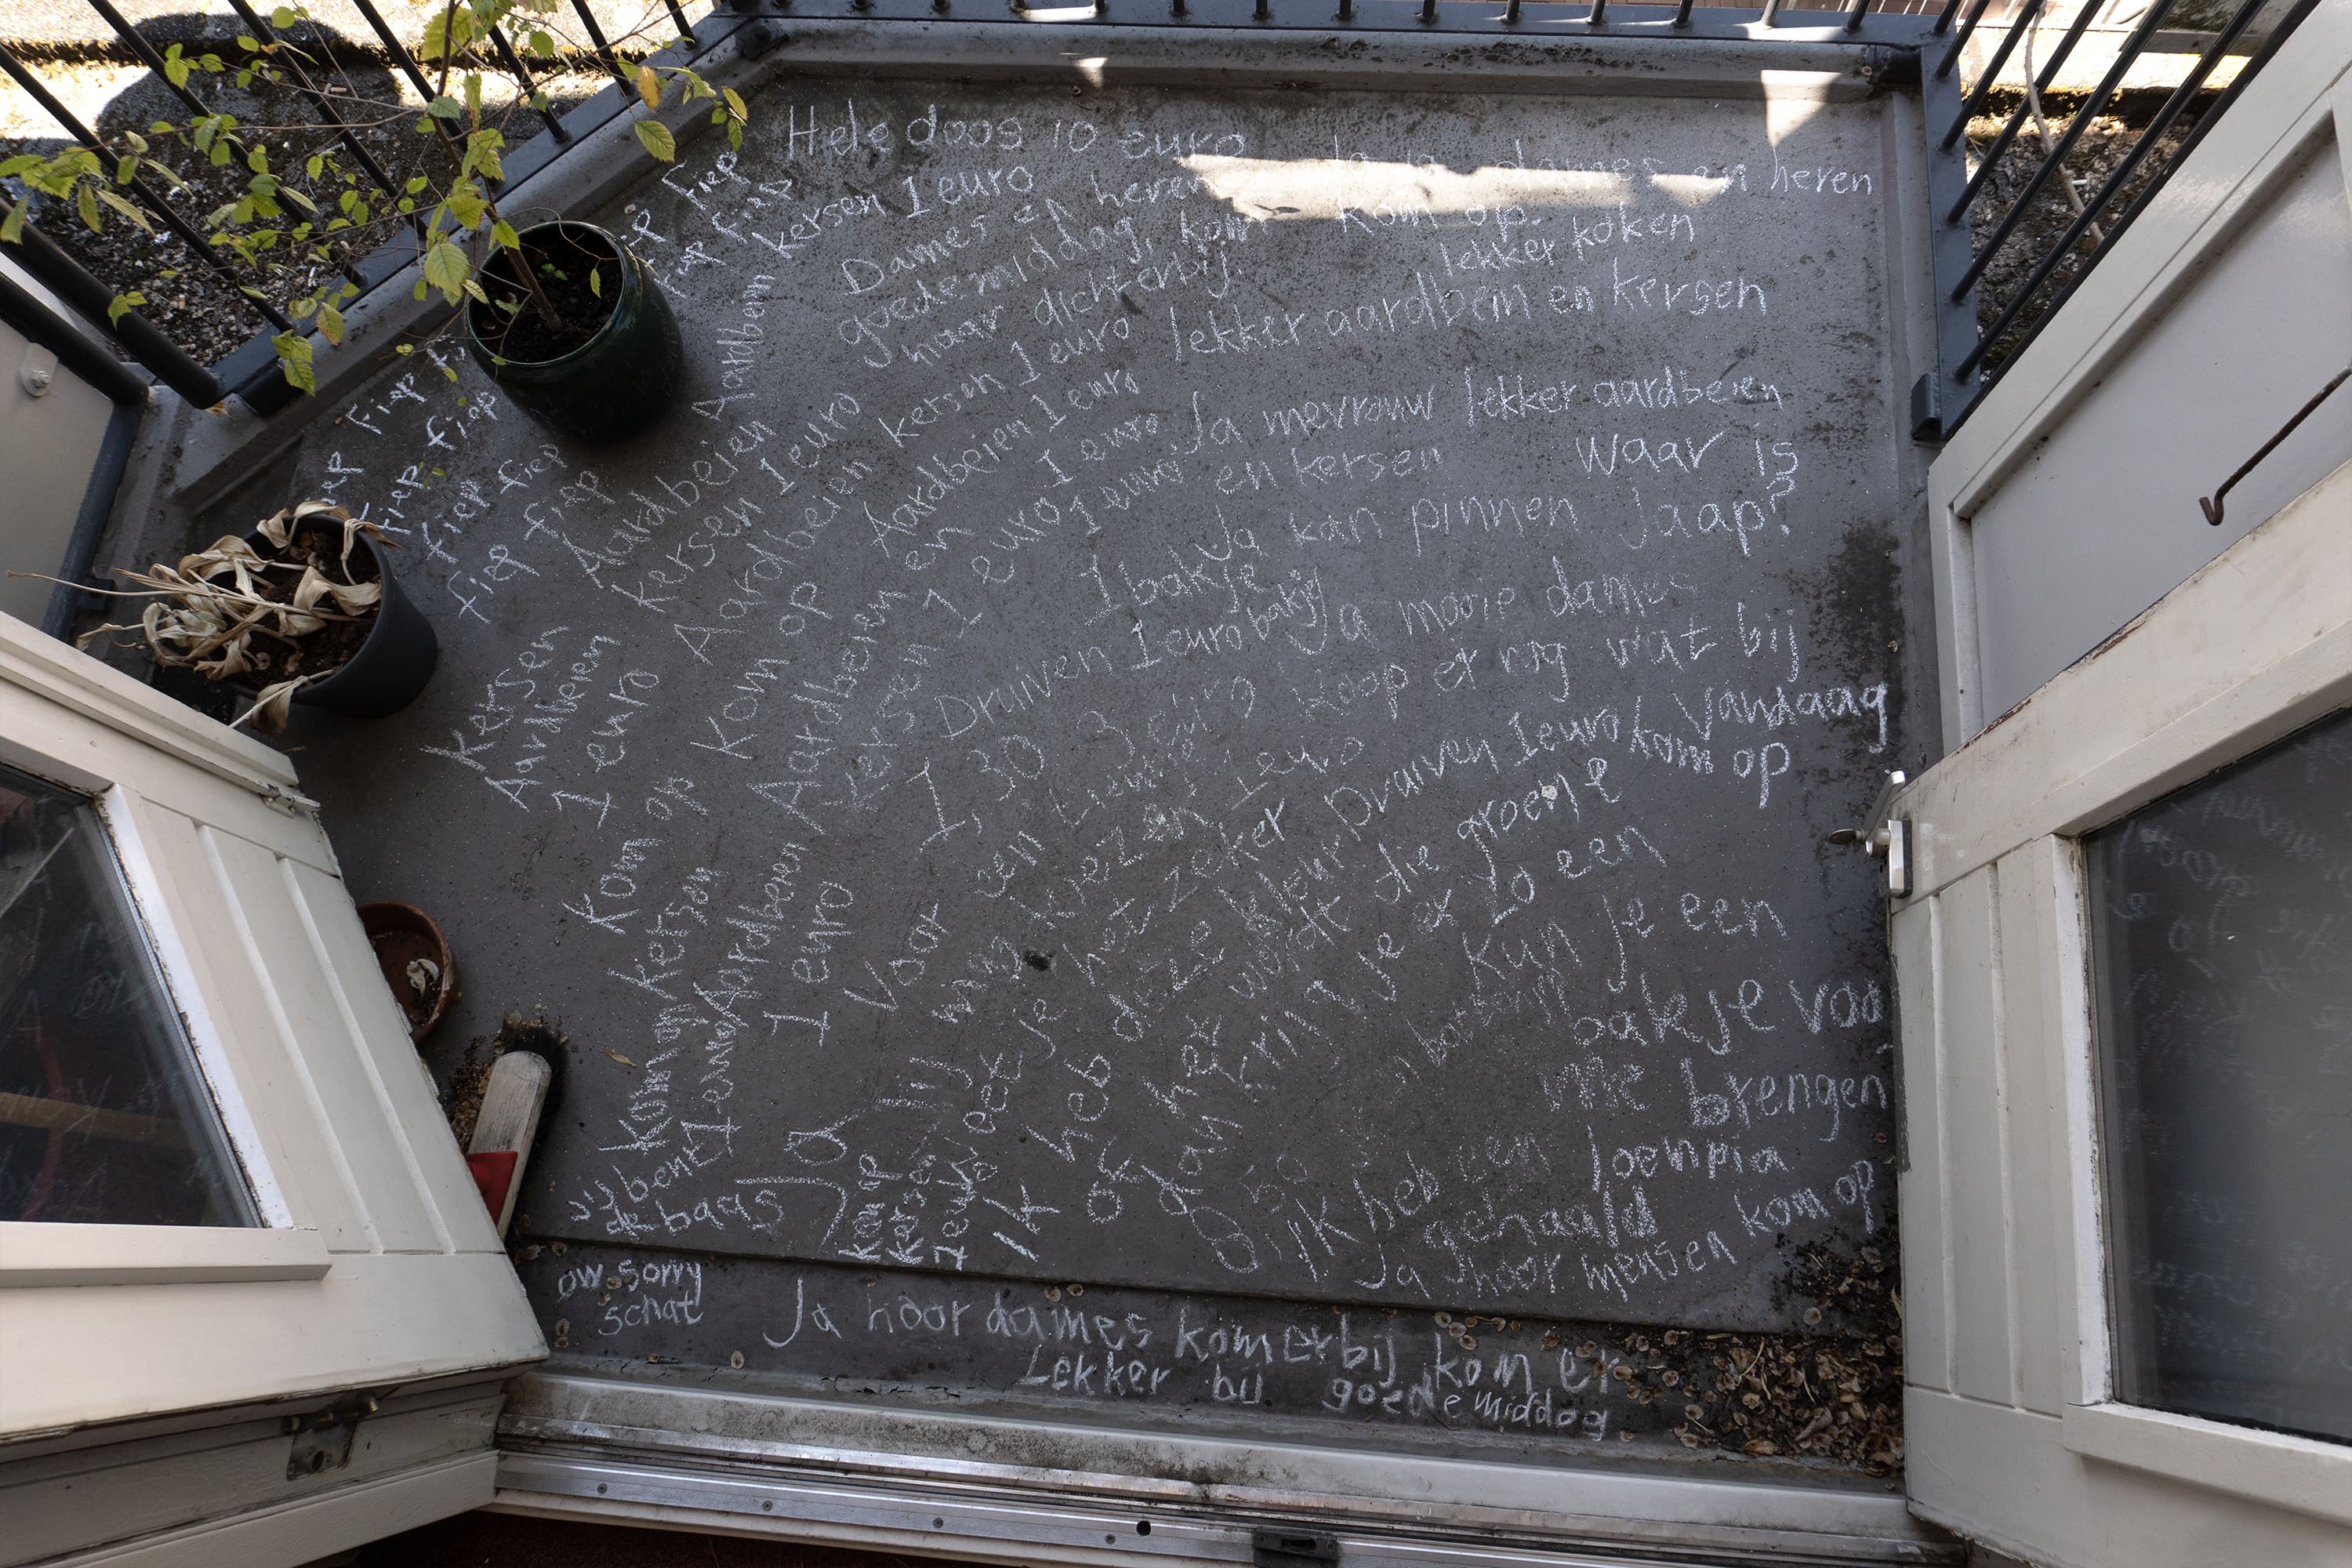 Hele doos 10 euro
dames en heren
kom op.
lekker koken
Fiep
Fiep Fiep
Aardbein kersen 1 euro
Dames en heren
goedemiddag, kom
naar dichterbij.
lekker aardbein en kersen
Fiep
Fiep Fiep
Fiep Fiep
Fiep Fiep
Aardbeien
kersen 1 euro
Aardbeien kersen 1 euro
Aardbeien 1 euro
1 euro
1 euro
Ja mevrouw lekker aardbeien
en kersen
waar is
Jaap?
Ja kan pinnen
1 bakje
1 euro bakje
Ja mooie dames
koop er nog wat bij
vandaag
kom op
Kersen
Aardbeien
1 euro
Kom op
Aardbeien en
kersen 1 euro
Druiven
1,50 3 euro
Kom op
kersen
Aardbeien
1 euro
Voor een
1 euro
Druiven 1 euro
Ja
Ik weet je het zeker
Ik heb deze kleur
of
die groene
dan het wordt
Fring je er zo een
0 50
kun je een
bakje
me brengen
Ik heb een loempia
gehaald
Ja hoor mensen kom op
kom op
1 euro
jij bent
ik baas
Koop
kersen
1 euro
ow sorry
schat
Ja hoor dames kom erbij kom er
Lekker bij goedemiddag